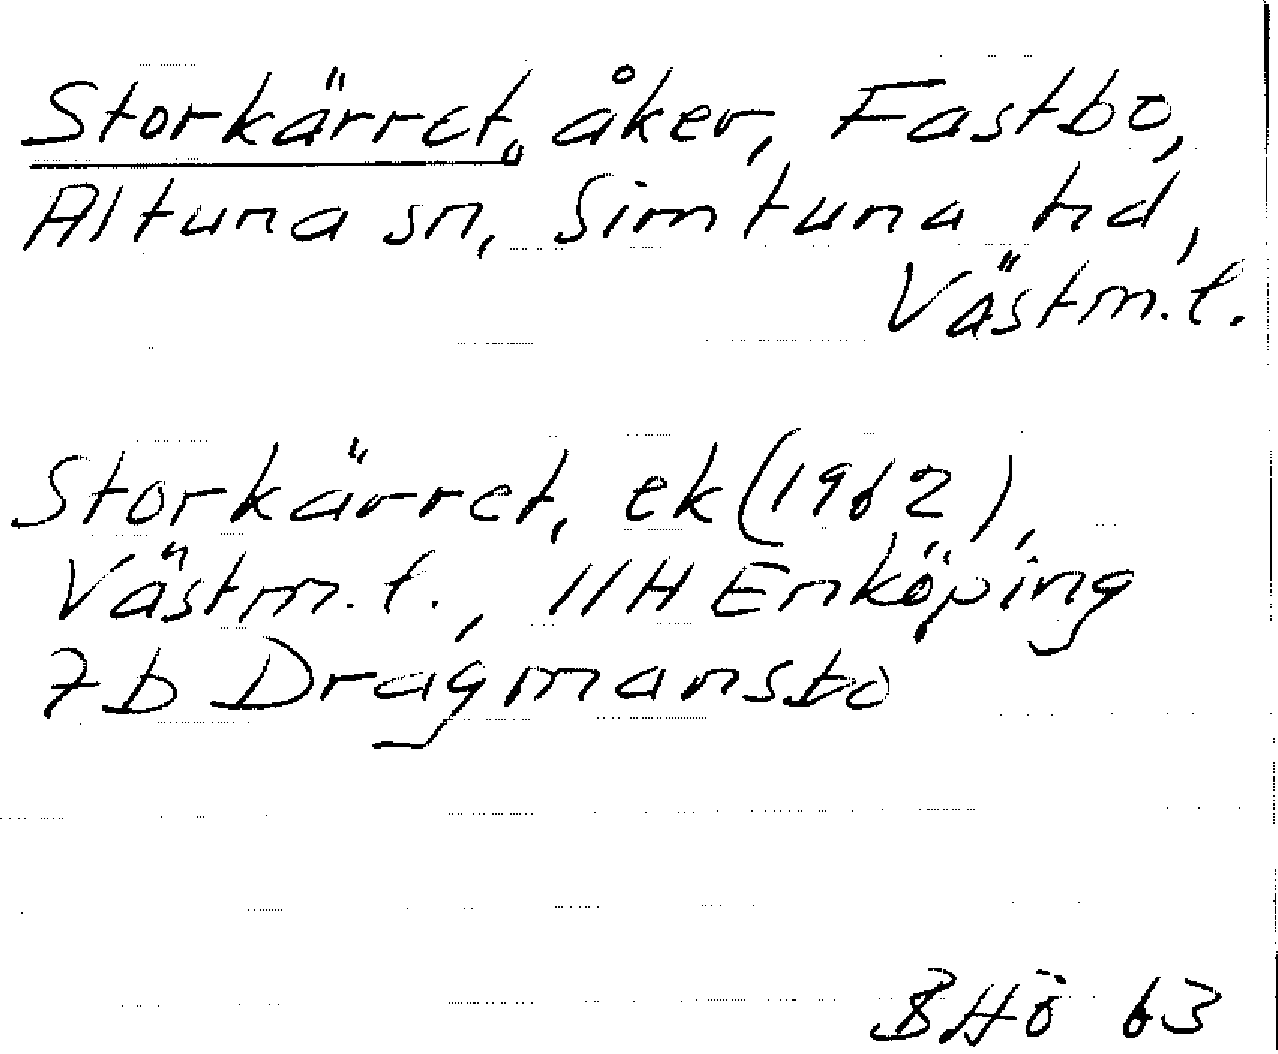 Storkärret, åker, Fastbo,
Altuna sn, Simtuna hd,
Västm. l.
Storkärret, ek (1962),
Västm. l., 11H Enköping
7b Dragmansbo
BHö 63